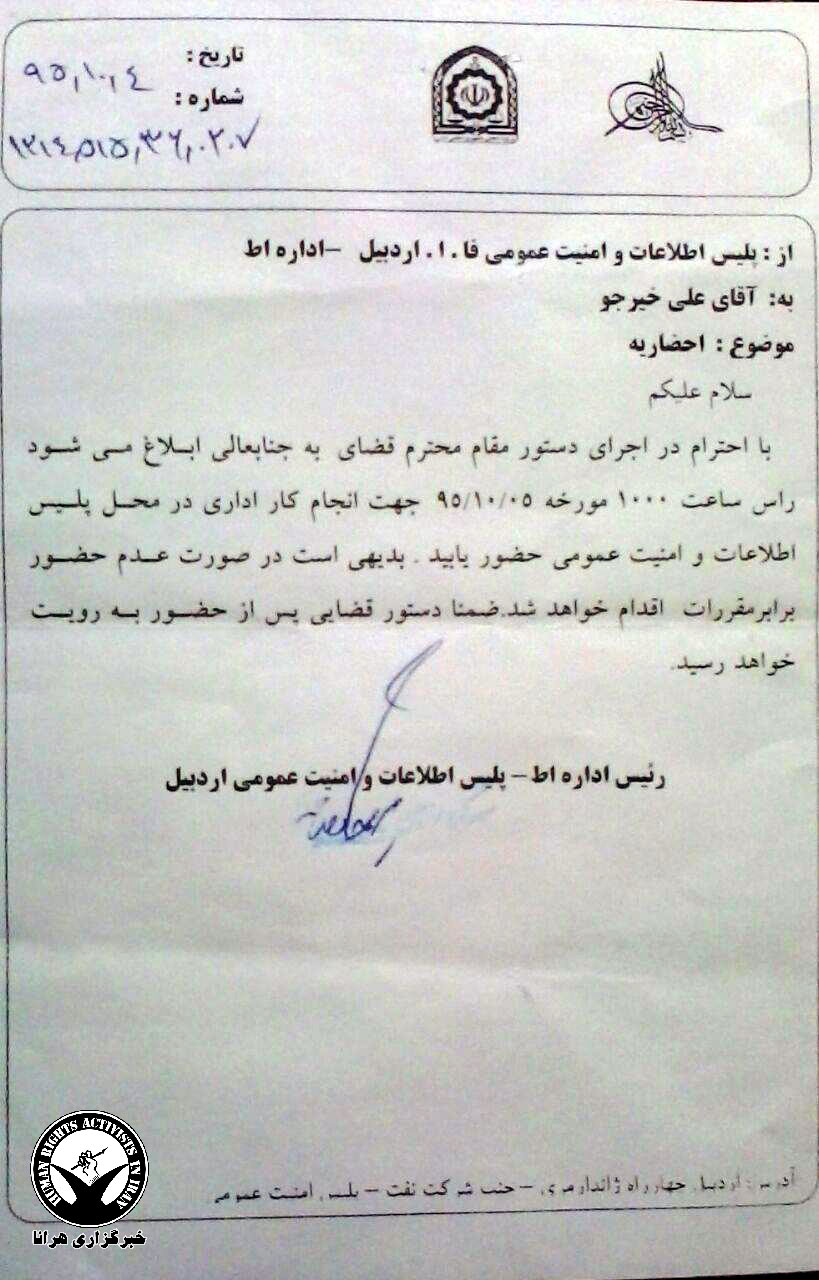 تاریخ : ۹۵,۱۰,۰٤
شماره :
از : پلیس اطلاعات و امنیت عمومی فا . ا . اردبیل - اداره اط
به: آقای علی خیرجو
موضوع : احضاریه
سلام علیکم
با احترام در اجرای دستور مقام محترم قضای به جنابعالی ابلاغ می شود
راس ساعت ۱۰۰۰ مورخه ۹۵/۱۰/۰۵ جهت انجام کار اداری در محل پلیس
اطلاعات و امنیت عمومی حضور یابید . بدیهی است در صورت عدم حضور
برابرمقررات اقدام خواهد شد.ضمنا دستور قضایی پس از حضور به رویت
خواهد رسید.
رئیس اداره اط – پلیس اطلاعات و امنیت عمومی اردبیل
آدرس: اردبیل چهارراه ژاندارمری – جنب شرکت نفت – پلیس امنیت عمومی
HUMAN RIGHTS ACTIVISTS IN IRAN
خبرگزاری هرانا